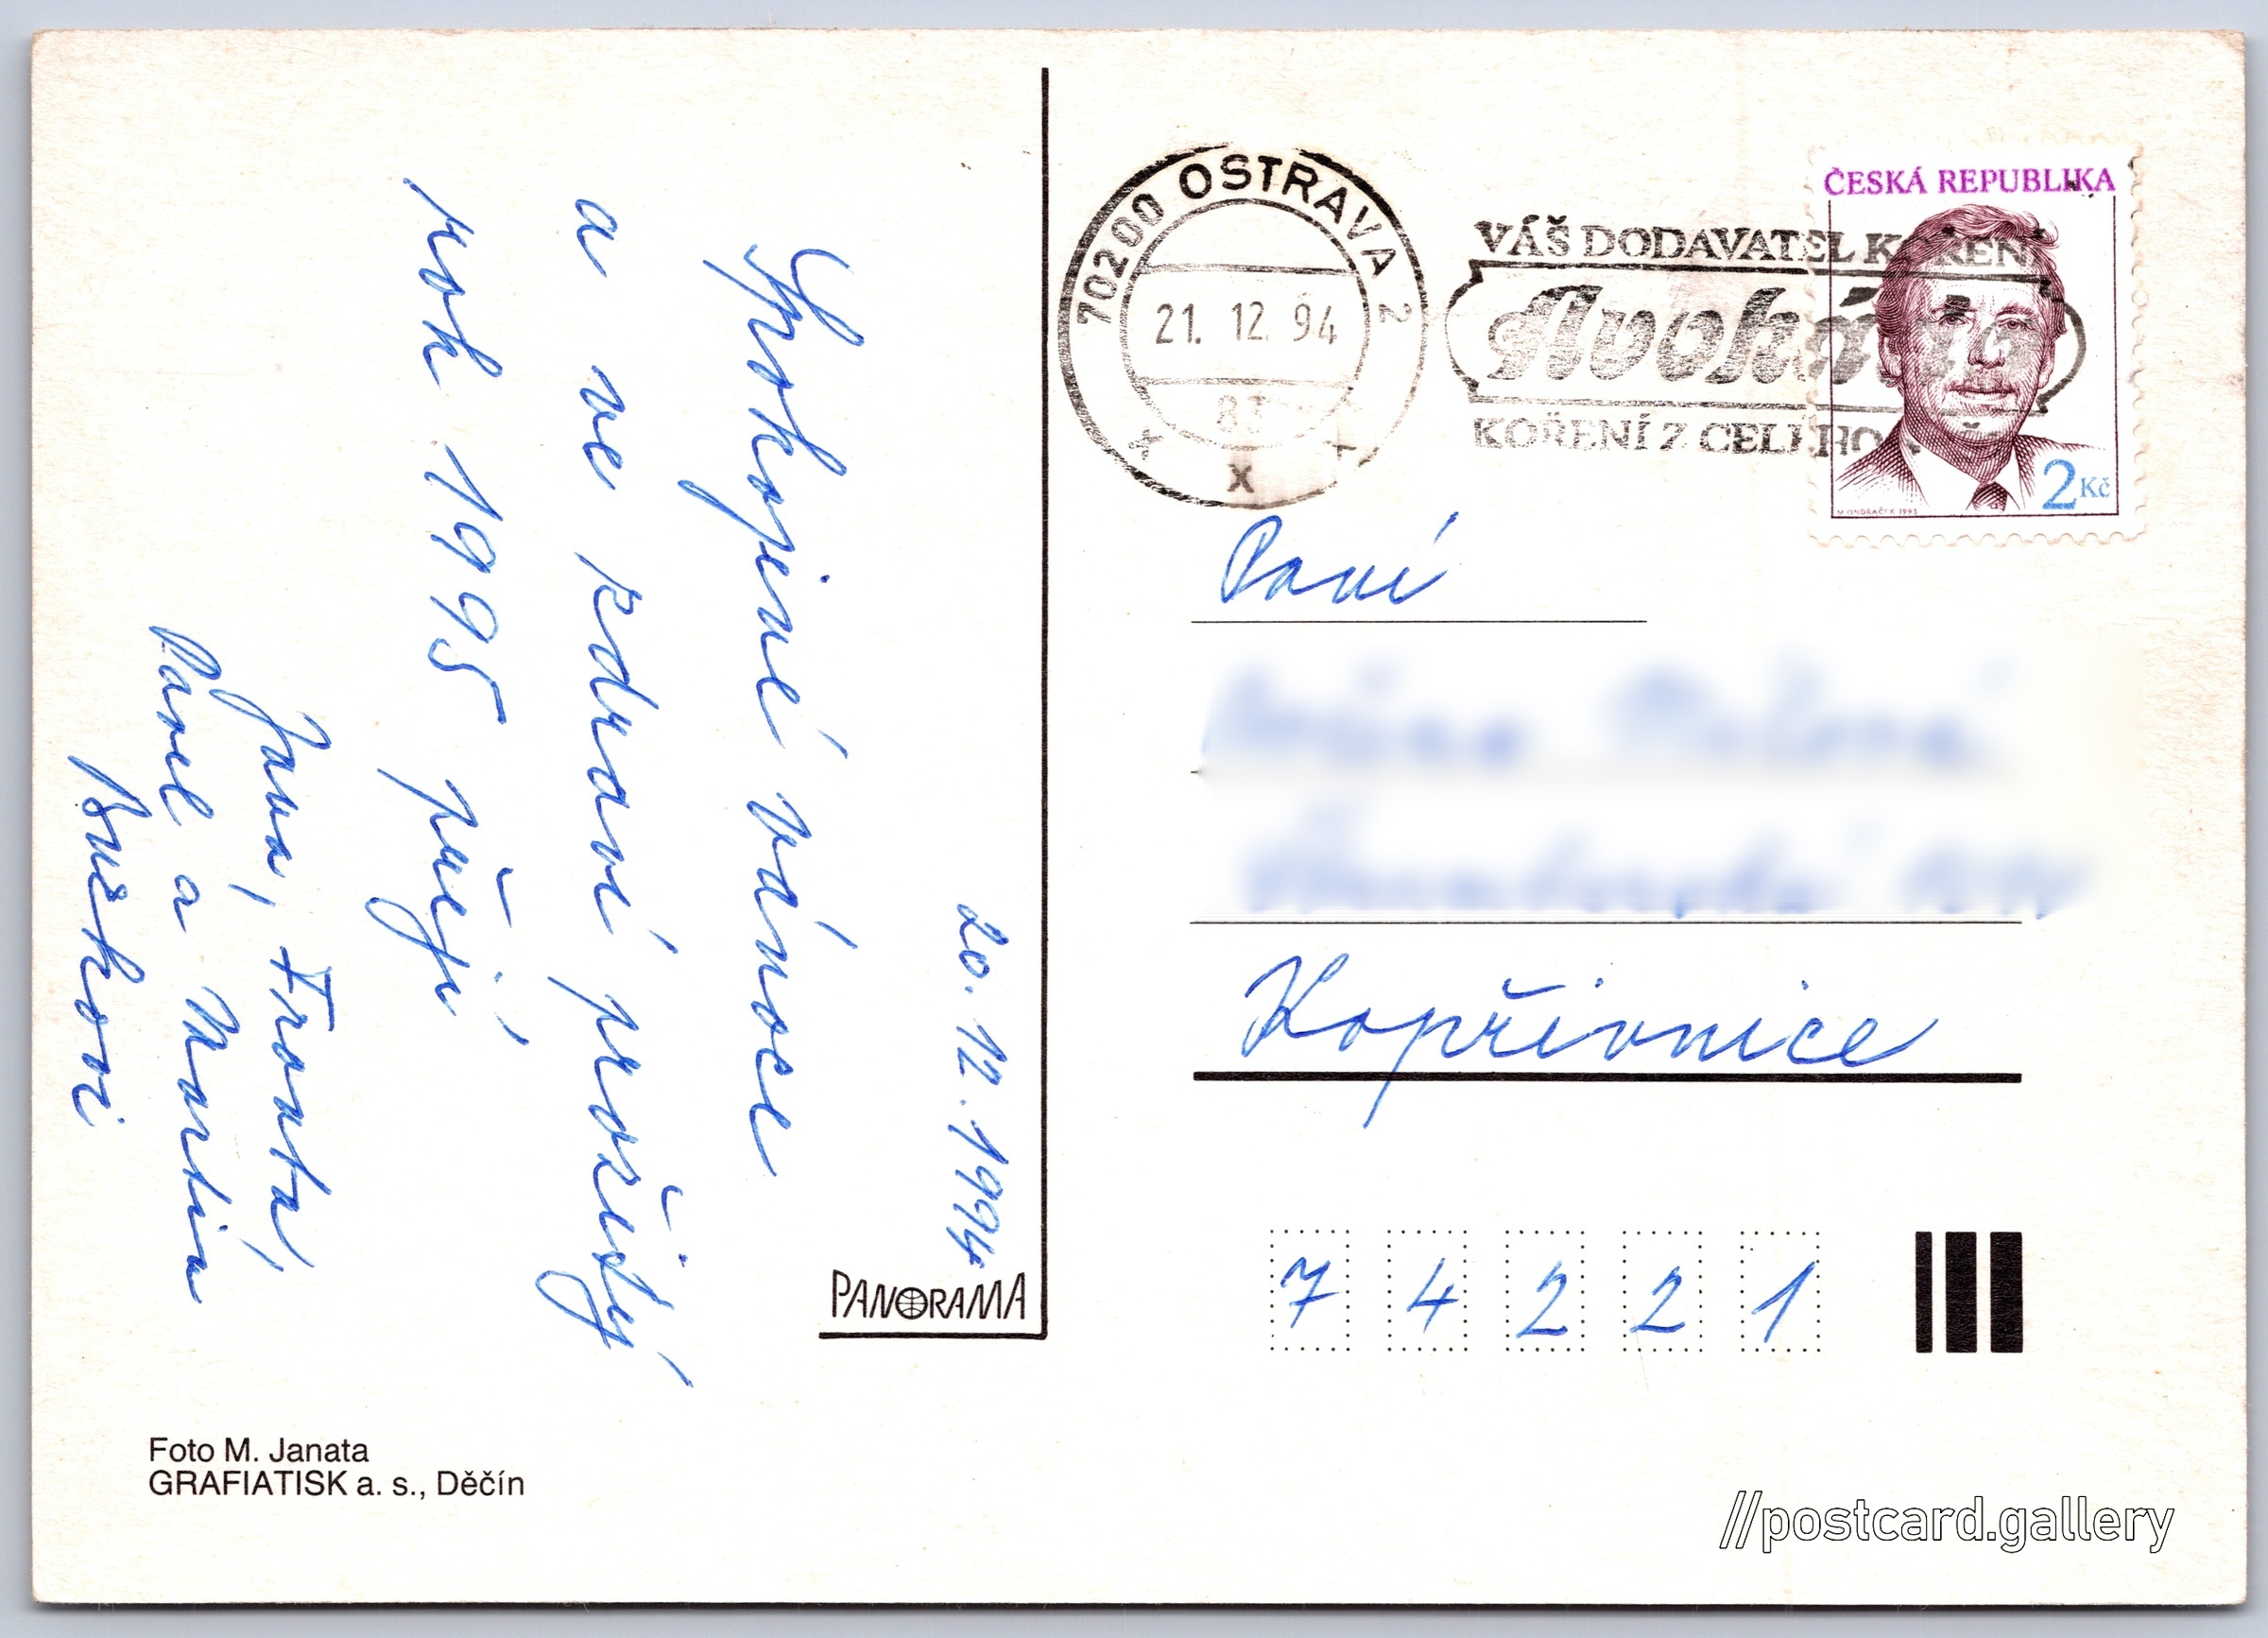 20. 12. 1994
Spokojené vánoce
a ve zdraví prožitý
rok 1995 přejí
Jana, Franta,
Pavel a Martin
PANORAMA
Foto M. Janata
GRAFIATISK a. s., Děčín
70200 OSTRAVA 2
21. 12. 94
x
VÁŠ DODAVATEL KOŘENÍ
KOŘENÍ Z CELÉHO
ČESKÁ REPUBLIKA
2 Kč
M. ONDRÁČEK 1993
Paní
Kopřivnice
7 4 2 2 1
//postcard.gallery